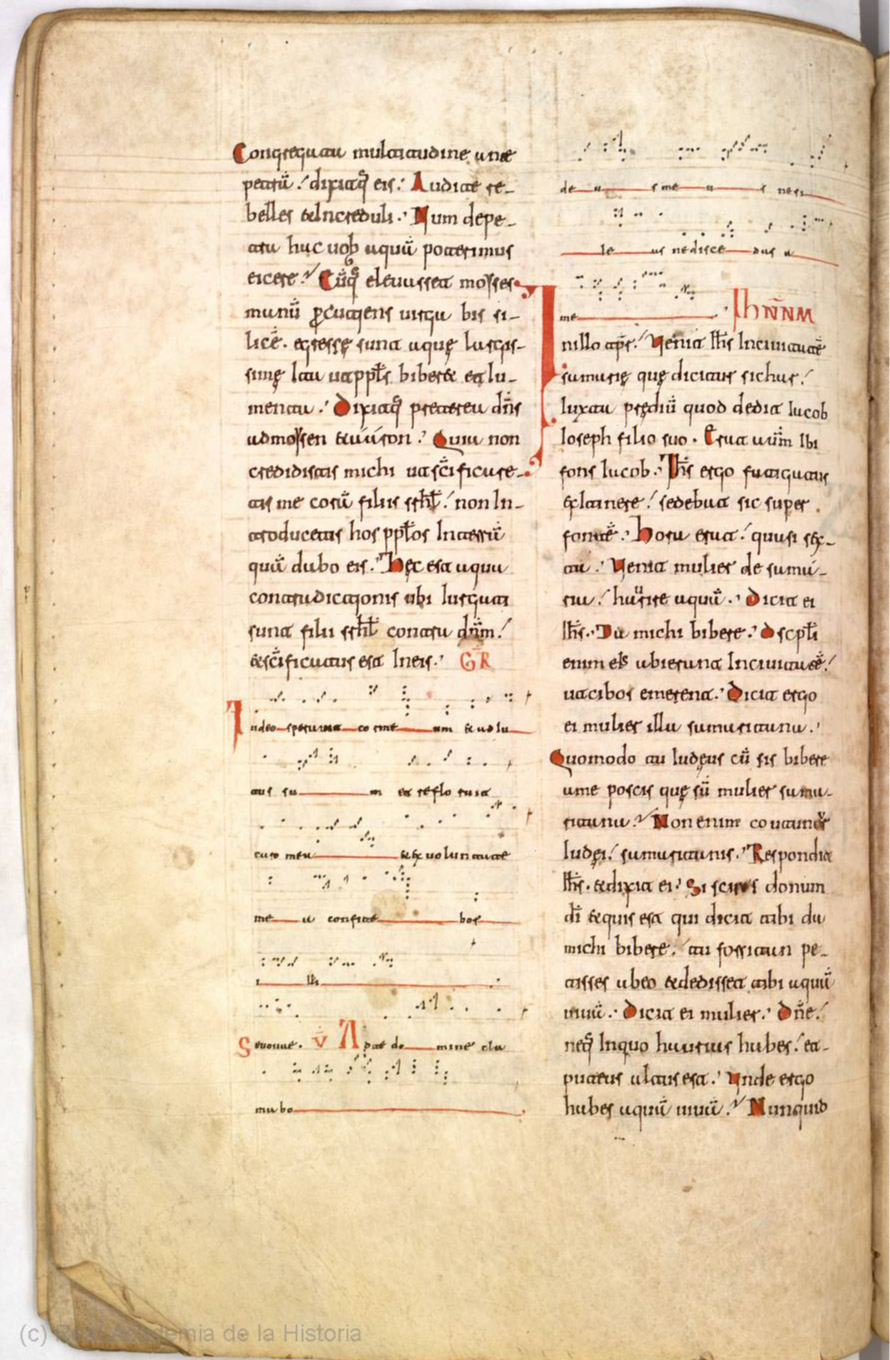 Congregata multitudine ante
petrā / dixitq; eis: Audite re-
belles & Increduli. Num de pe-
tra huc uob aquā poterimus
eicere? Cūq; eleuasset moyses
manū ꝑcutiens uirga bis si-
licē. egressę sunt aquę largis-
simę Ita ut appl̄s biberet & Iu-
menta. Dixitq; preterea dn̄s
ad moysen & aaron. Quia non
credidistis michi ut sc̄ificare-
tis me corā filiis srhł / non In-
troducetis hos ppłos In terrā
quā dabo eis. Hęc est aqua
contradictionis ubi Iurgati
sunt filii srhł contra dn̄m /
& sc̄ificatus est In eis. GR̄
In deo sperauit cor me um & adiu
tus su m et reflo ruit
caro mea & ex uoluntate
me a confite bor
i lli
Seuouae. V Ad te do mine cla
mabo
de us me us ne si
le as ne disce das a
me IhN̄NM
In illo tp̄r. Venit Ih̄s In ciuitatē
samarię quę dicitur sichar /
Iuxta prędiū quod dedit Iacob
Ioseph filio suo. Erat aut̄m Ibi
fons Iacob. Ih̄s ergo fatigatus
ex Itinere / sedebat sic super
fontē. Hora erat / quasi sex-
ta. Venit mulier de sama-
ria / haurire aquā. Dicit ei
Ih̄s. Da michi bibere. Discpłi
enim ei's abierunt In ciuitatē /
ut cibos emerent. Dicit ergo
ei mulier illa samaritana.
Quomodo tu Iudęus cū sis bibere
a me poscis quę sū mulier sama-
ritana? Non enim coutunt̄
Iudęi / samaritanis. Respondit
Ih̄s. & dixit ei. Si scires donum
dī & quis est qui dicit tibi da
michi bibere / tu forsitan pe-
tisses ab eo & dedisset tibi aquā
uiuā. Dicit ei mulier. Dn̄e /
neq; In quo haurias habes / et
puteus altus est. Unde ergo
habes aquā uiuā? Nunquid
(c) Real Academia de la Historia